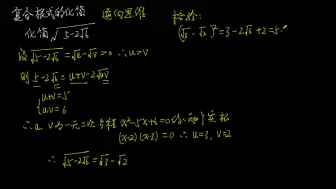 复合根式的化简 逆向思维
化简 √(5-2√6)
设√(5-2√6)=√u-√v>0 ∴u>v
则 5-2√6=u+v-2√uv
{u+v=5
uv=6
∴u、v为一元二次方程 x²-5x+6=0的两个实根
(x-2)(x-3)=0 ∴u=3, v=2
∴√(5-2√6)=√3-√2
检验:
(√3-√2)²=3-2√6+2=5-